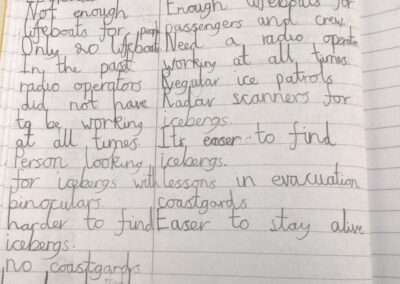 Not enough
lifeboats for people
Only 20 lifeboat
In the past
radio operators
did not have
to be working
at all times.
Person looking
for icebergs with
binoculars.
harder to find
icebergs.
no coastgards
Enough lifeboats for
passengers and crew.
Need a radio operator
working at all times
Regular ice patrols
Radar scanners for
icebergs.
Its easer to find
icebergs.
lessons in evacuation
coastgards
Easer to stay alive